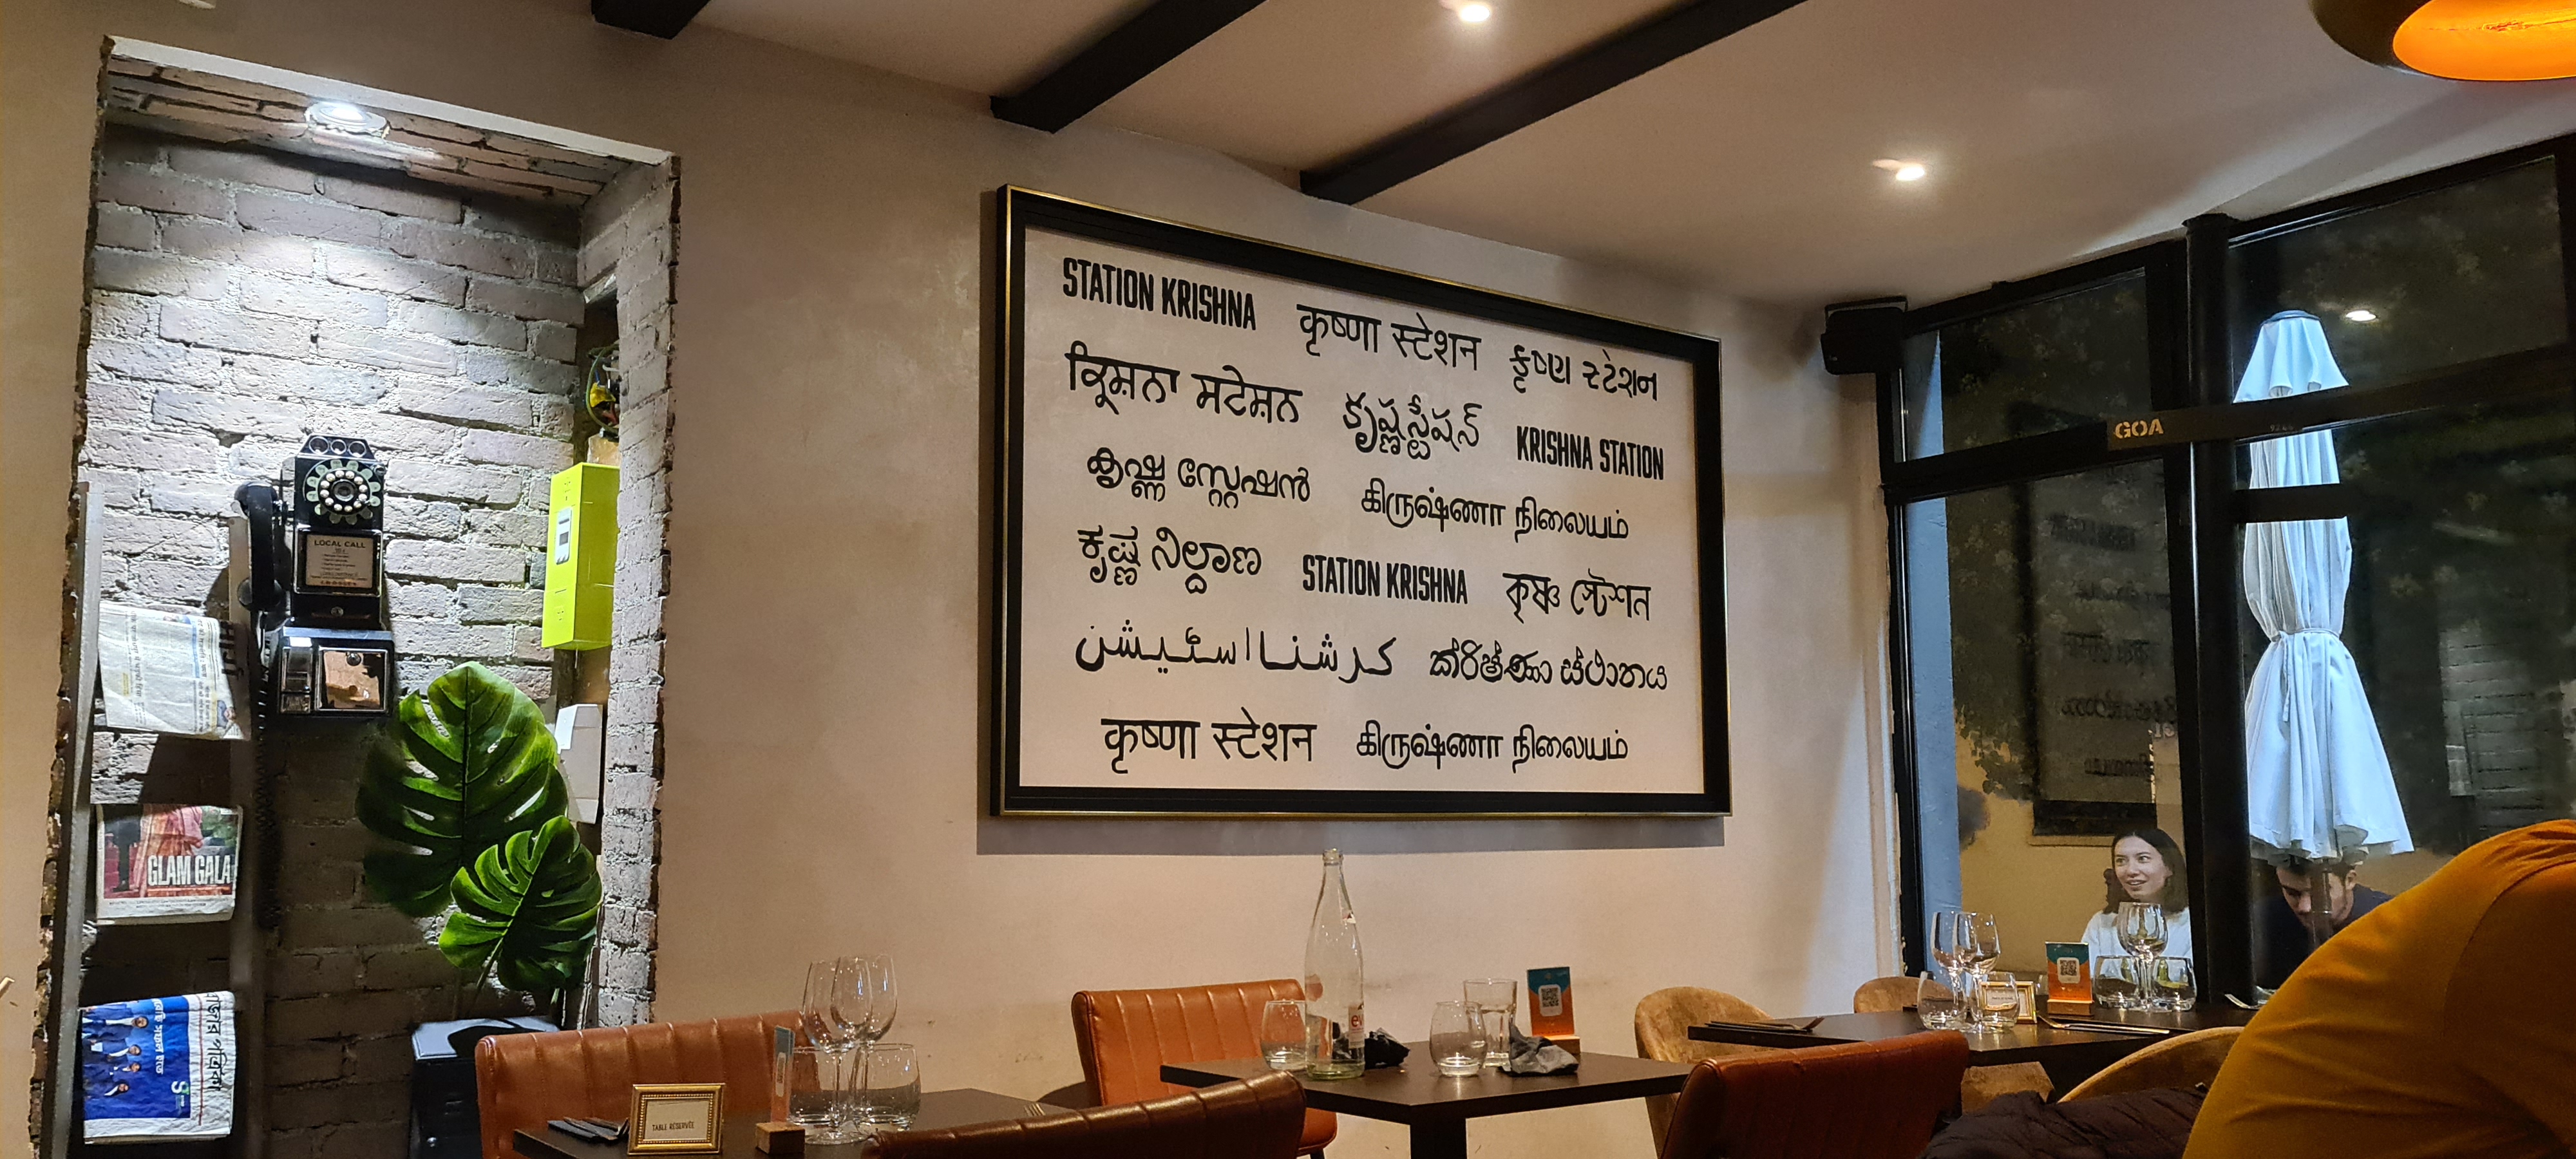 STATION KRISHNA कृष्णा स्टेशन કૃષ્ણ સ્ટેશન
ਕ੍ਰਿਸ਼ਨਾ ਸਟੇਸ਼ਨ కృష్ణ స్టేషన్ KRISHNA STATION
കൃഷ്ണ സ്റ്റേഷൻ கிருஷ்ணா நிலையம்
ಕೃಷ್ಣ ನಿಲ್ದಾಣ STATION KRISHNA কৃষ্ণ স্টেশন
کرشنا اسٹیشن ක්රිෂ්ණා ස්ථානය
कृष्णा स्टेशन கிருஷ்ணா நிலையம்
LOCAL CALL
GLAM GALA
GOA
TABLE RÉSERVÉE